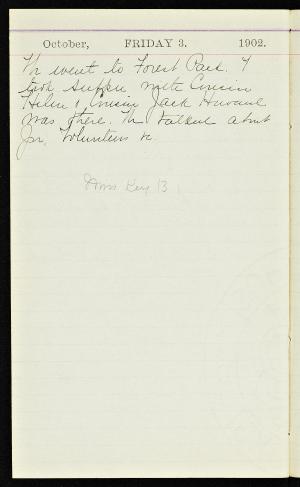 October, FRIDAY 3. 1902.
We went to Forest Park. I
took supper with Cousin
Helen & Cousin Jack
was there. We talked about
Jr. Volunteers &c.